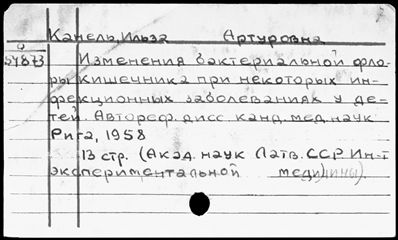 Канель, Ильза Артуровна
а
54873
Изменения бактериальной фло-
ры кишечника при некоторых ин-
фекционных заболеваниях у де-
тей. Автореф. дисс. канд. мед. наук
Рига, 1958
13 стр. (Акад. наук Латв. ССР. Ин-т
экспериментальной медицины).